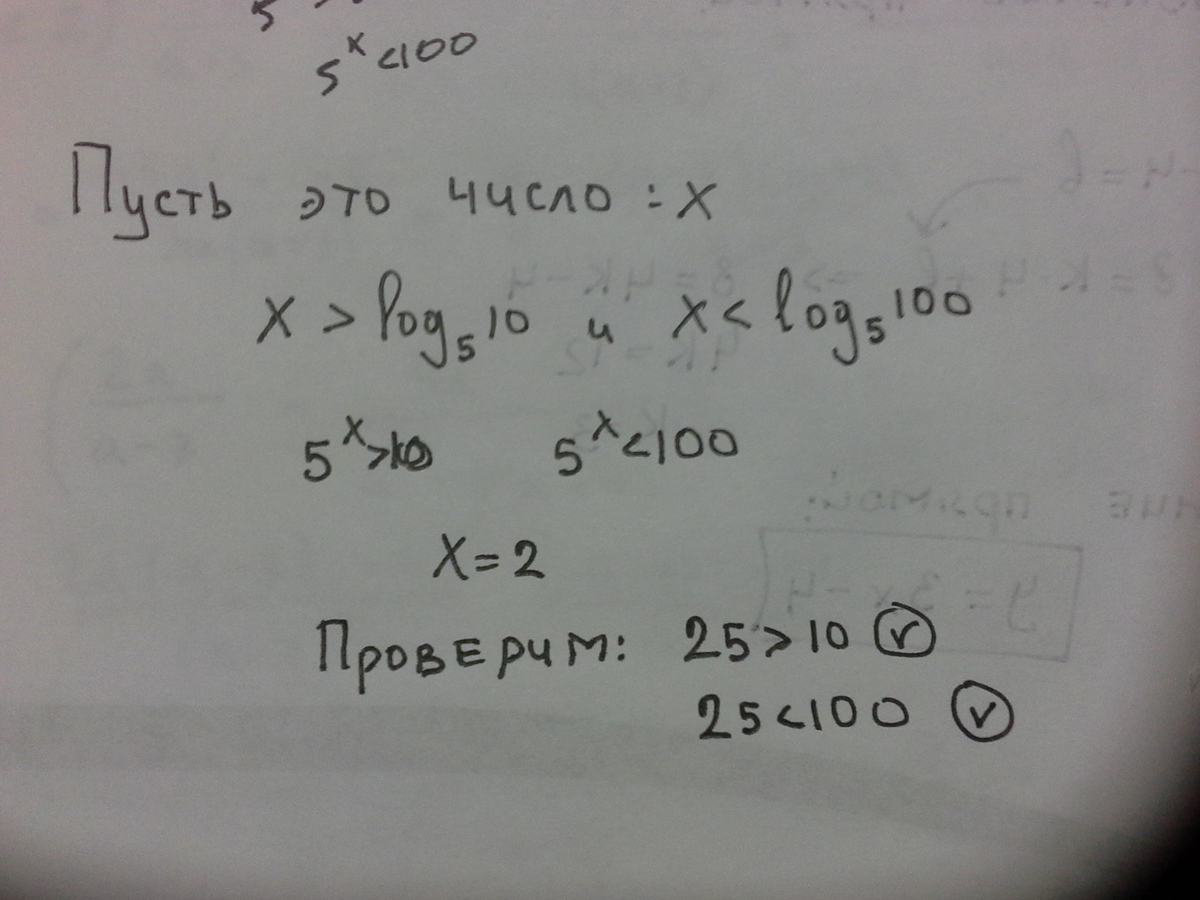 5
5^x<100
Пусть это число : x
x > log₅10 и x < log₅100
5^x>10 5^x<100
x=2
Проверим: 25>10 (v)
25<100 (v)